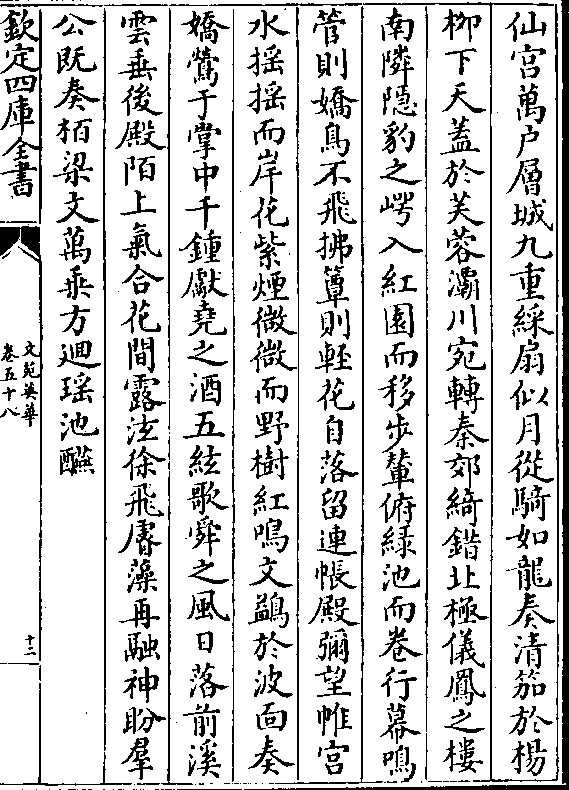 仙宫萬户層城九重綵扇似月從騎如龍奏清笳於楊
栁下天蓋於芙蓉灞川宛轉秦郊綺錯北極儀鳳之樓
南隣隠豹之崿入紅園而移步輦俯緑池而卷行幕鳴
管則嬌鳥不飛拂簟則輕花自落留連帳殿彌望帷宫
水揺揺而岸花紫煙微微而野樹紅鳴文鷁於波面奏
嬌鶯于掌中千鍾獻堯之酒五絃歌舜之風日落前溪
雲垂後殿陌上氣合花間露泫徐飛睿藻再融神盼羣
公既奏栢梁文萬乗方迴瑶池醼
欽定四庫全書
文苑英華
卷五十八
十二